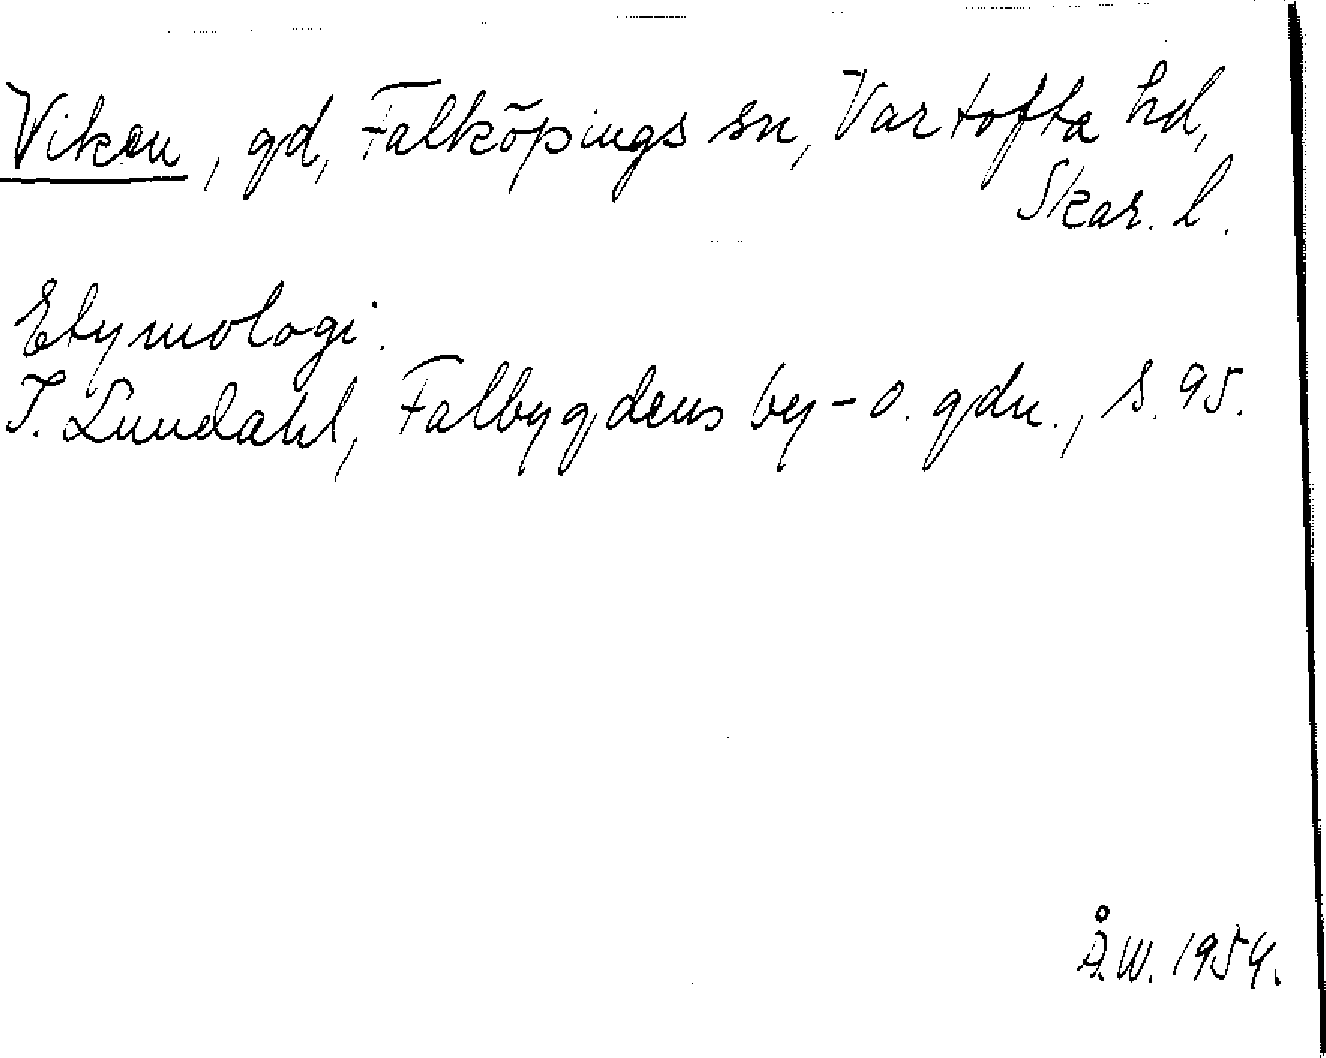 Viken, gd, Falköpings sn, Vartofta hd,
Skar. l.
Etymologi.
I. Lundahl, Falbygdens by- o. gdn., s. 95.
Å.W. 1954.